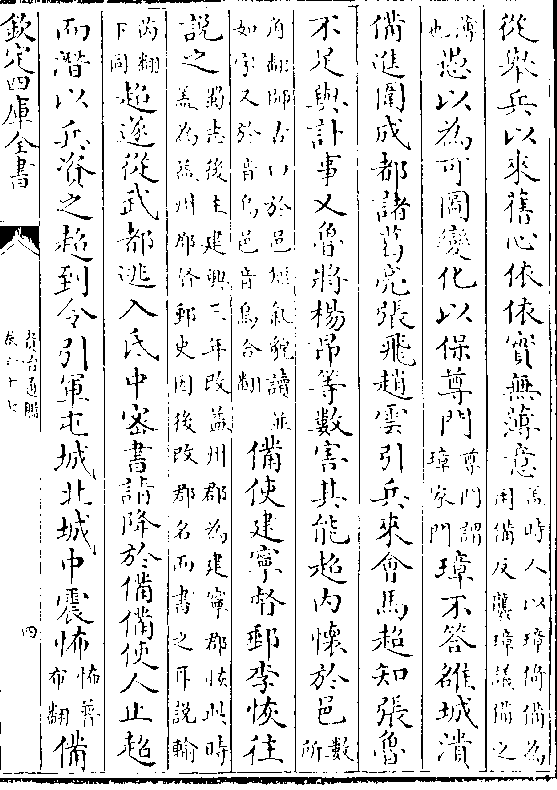 從舉兵以來舊心依依實無薄意言時人以璋倚備為用備反襲璋議備之
薄也愚以為可圖變化以保尊門尊門謂璋家門璋不答雒城潰
備進圍成都諸葛亮張飛趙雲引兵來會馬超知張魯
不足與計事又魯將楊昂等數害其能超內懷於邑數所
角翻師古曰於邑短氣貌讀並如字又於音烏邑音烏合翻備使建寧督郵李恢往
說之蜀志後主建興三年改益州郡為建寧郡恢此時蓋為益州郡督郵史因後改郡名而書之耳說輸
芮翻下同超遂從武都逃入氐中密書請降於備備使人止超
而潛以兵資之超到令引軍屯城北城中震怖怖普布翻備
欽定四庫全書
資治通鑑
卷六十七
四